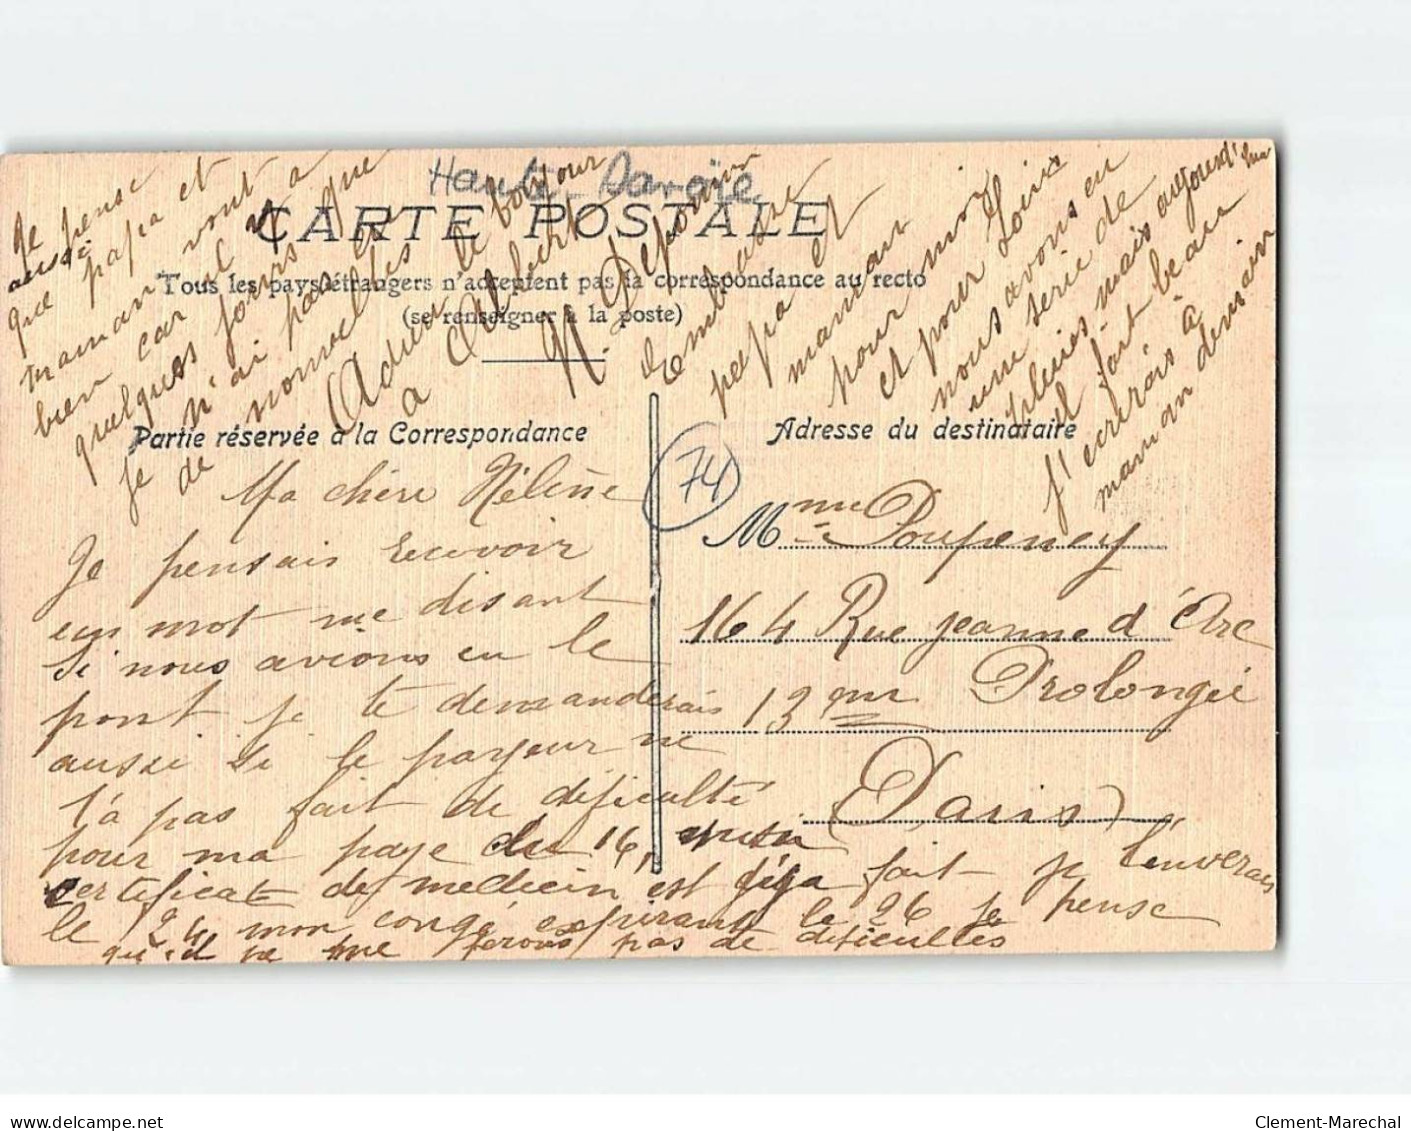 Haute-Savoie
CARTE POSTALE
Tous les pays étrangers n'acceptent pas la correspondance au recto
(se renseigner à la poste)
Partie réservée à la Correspondance
Ma chère Hélène
Je pensais recevoir
un mot me disant
si nous avions eu le
pont je te demanderais
aussi si le payeur ne
t'a pas fait de dificulté
pour ma paye du 16,
certificat de medecin est fait je l'enverais
le 24 mon congé expirant le 26 je pense
qu'il ne me ferons pas de dificultés
Je pense
aussi
que papa et
maman vont
bien car il y a
quelques jours que
je n'ai pas eu
de nouvelles
Adieu le bonjour
à Albert
Embrasse
papa et
maman
pour moi
et pour Louis
nous avons eu
une serie de
pluies mais aujourd'hui
il fait beau
j'ecrirais à
maman demain
74
Adresse du destinataire
Mme Poupeney
164 Rue Jeanne d'Arc
Prolongée
13eme
(Paris)
delcampe.net
Clement-Marechal